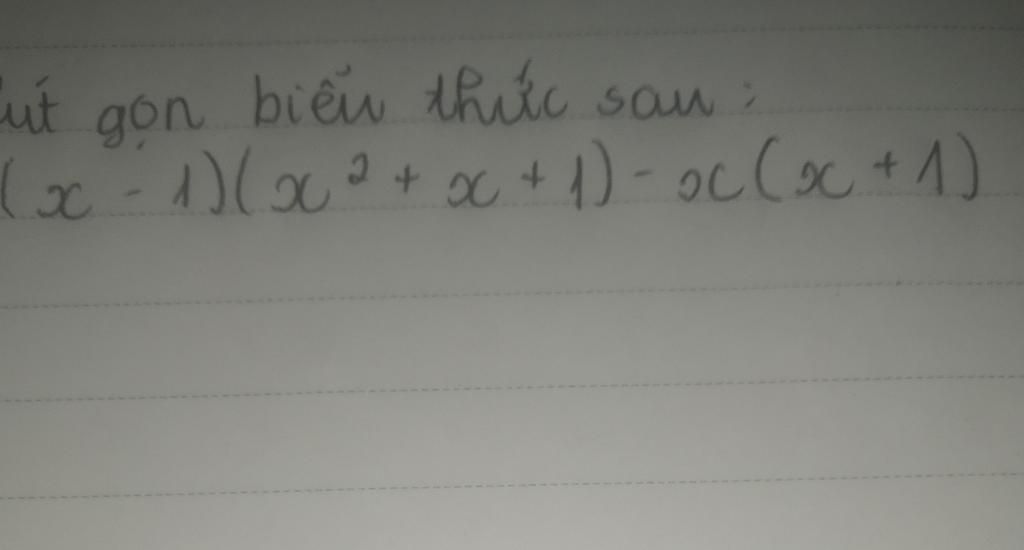 út gọn biểu thức sau:
(x - 1)(x² + x + 1) - x(x + 1)